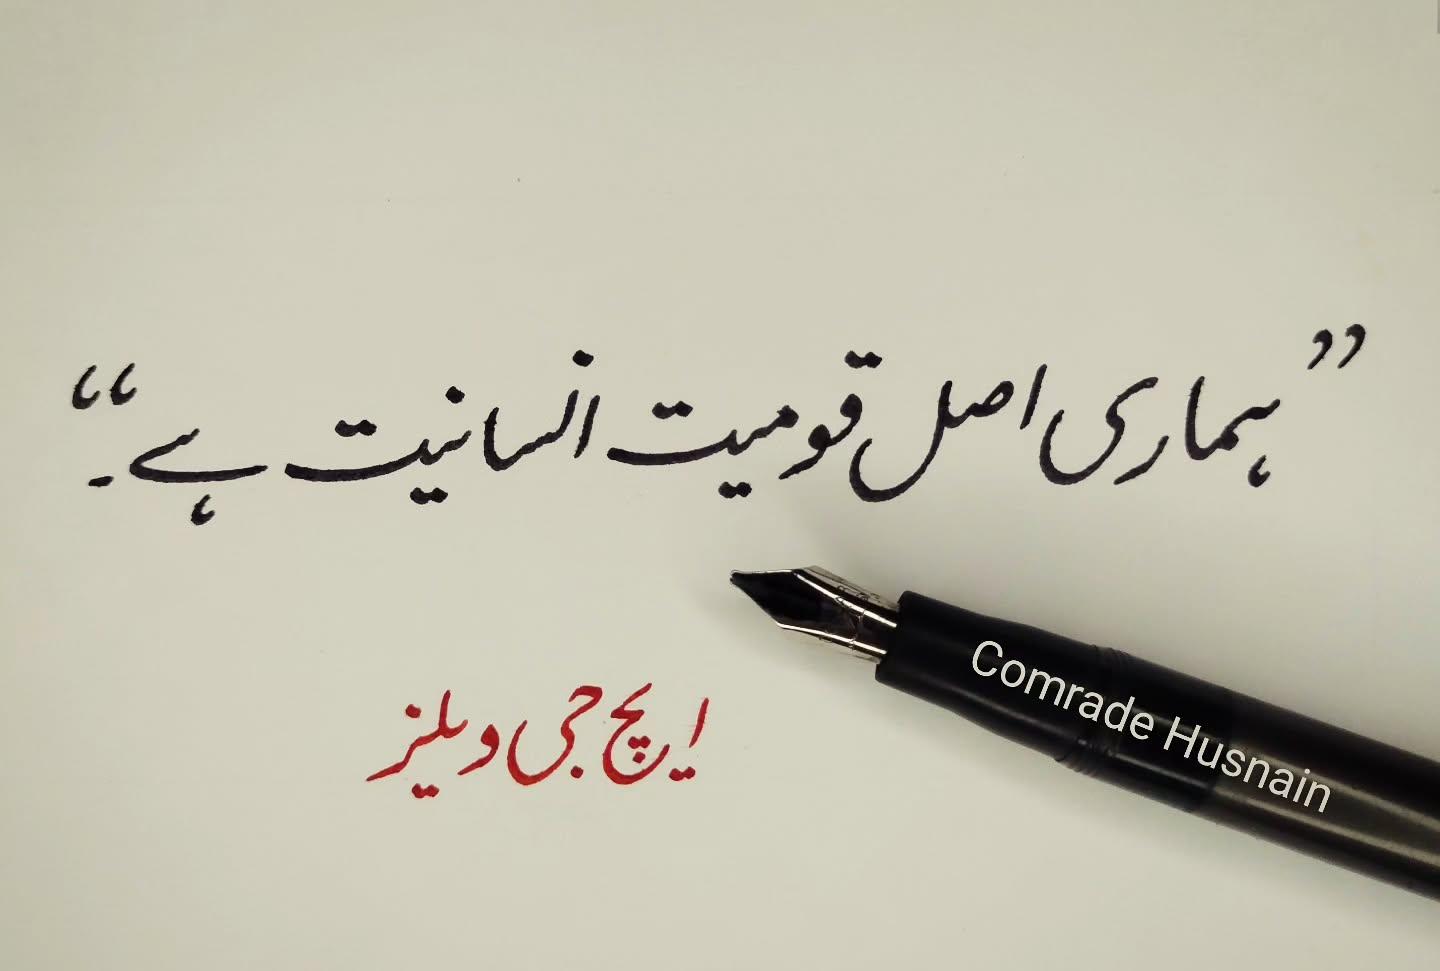 ”ہماری اصل قومیت انسانیت ہے۔“
ایچ جی ویلیز
Comrade Husnain